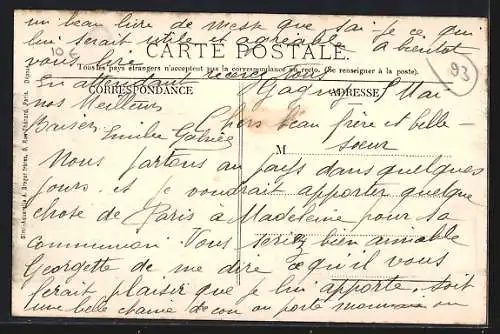 un beau livre de messe que sai-je ce qui
lui serait utile et agréable. A bientot
vous lire
10 €
CARTE POSTALE
Tous les pays étrangers n'acceptent pas la correspondance au recto. (Se renseigner à la poste).
93
En attendant recevez
CORRESPONDANCE
ADRESSE
nos Meilleurs
Baisers
Emilie
Gagny Mai
Chers beau frère et belle-
soeur
M
Nous partons au pays dans quelques
jours et je voudrait apporter quelque
chose de Paris à Madeleine pour sa
Communion. Vous seriez bien aimable
Georgette de me dire ce qu'il vous
ferait plaisir que je lui apporte. soit
une belle chaine de cou ou porte monnaie ou